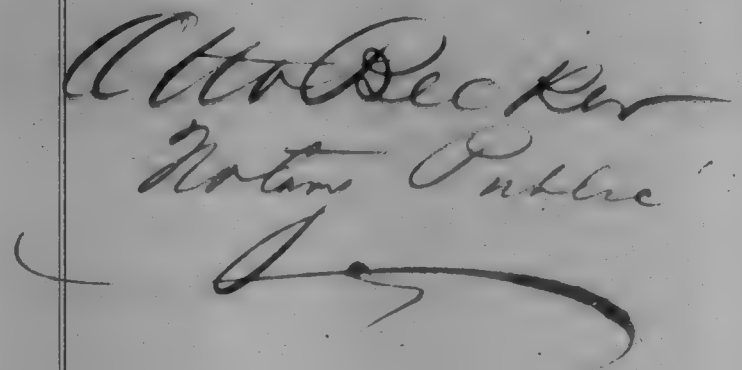 Otto Becker
Notary Public